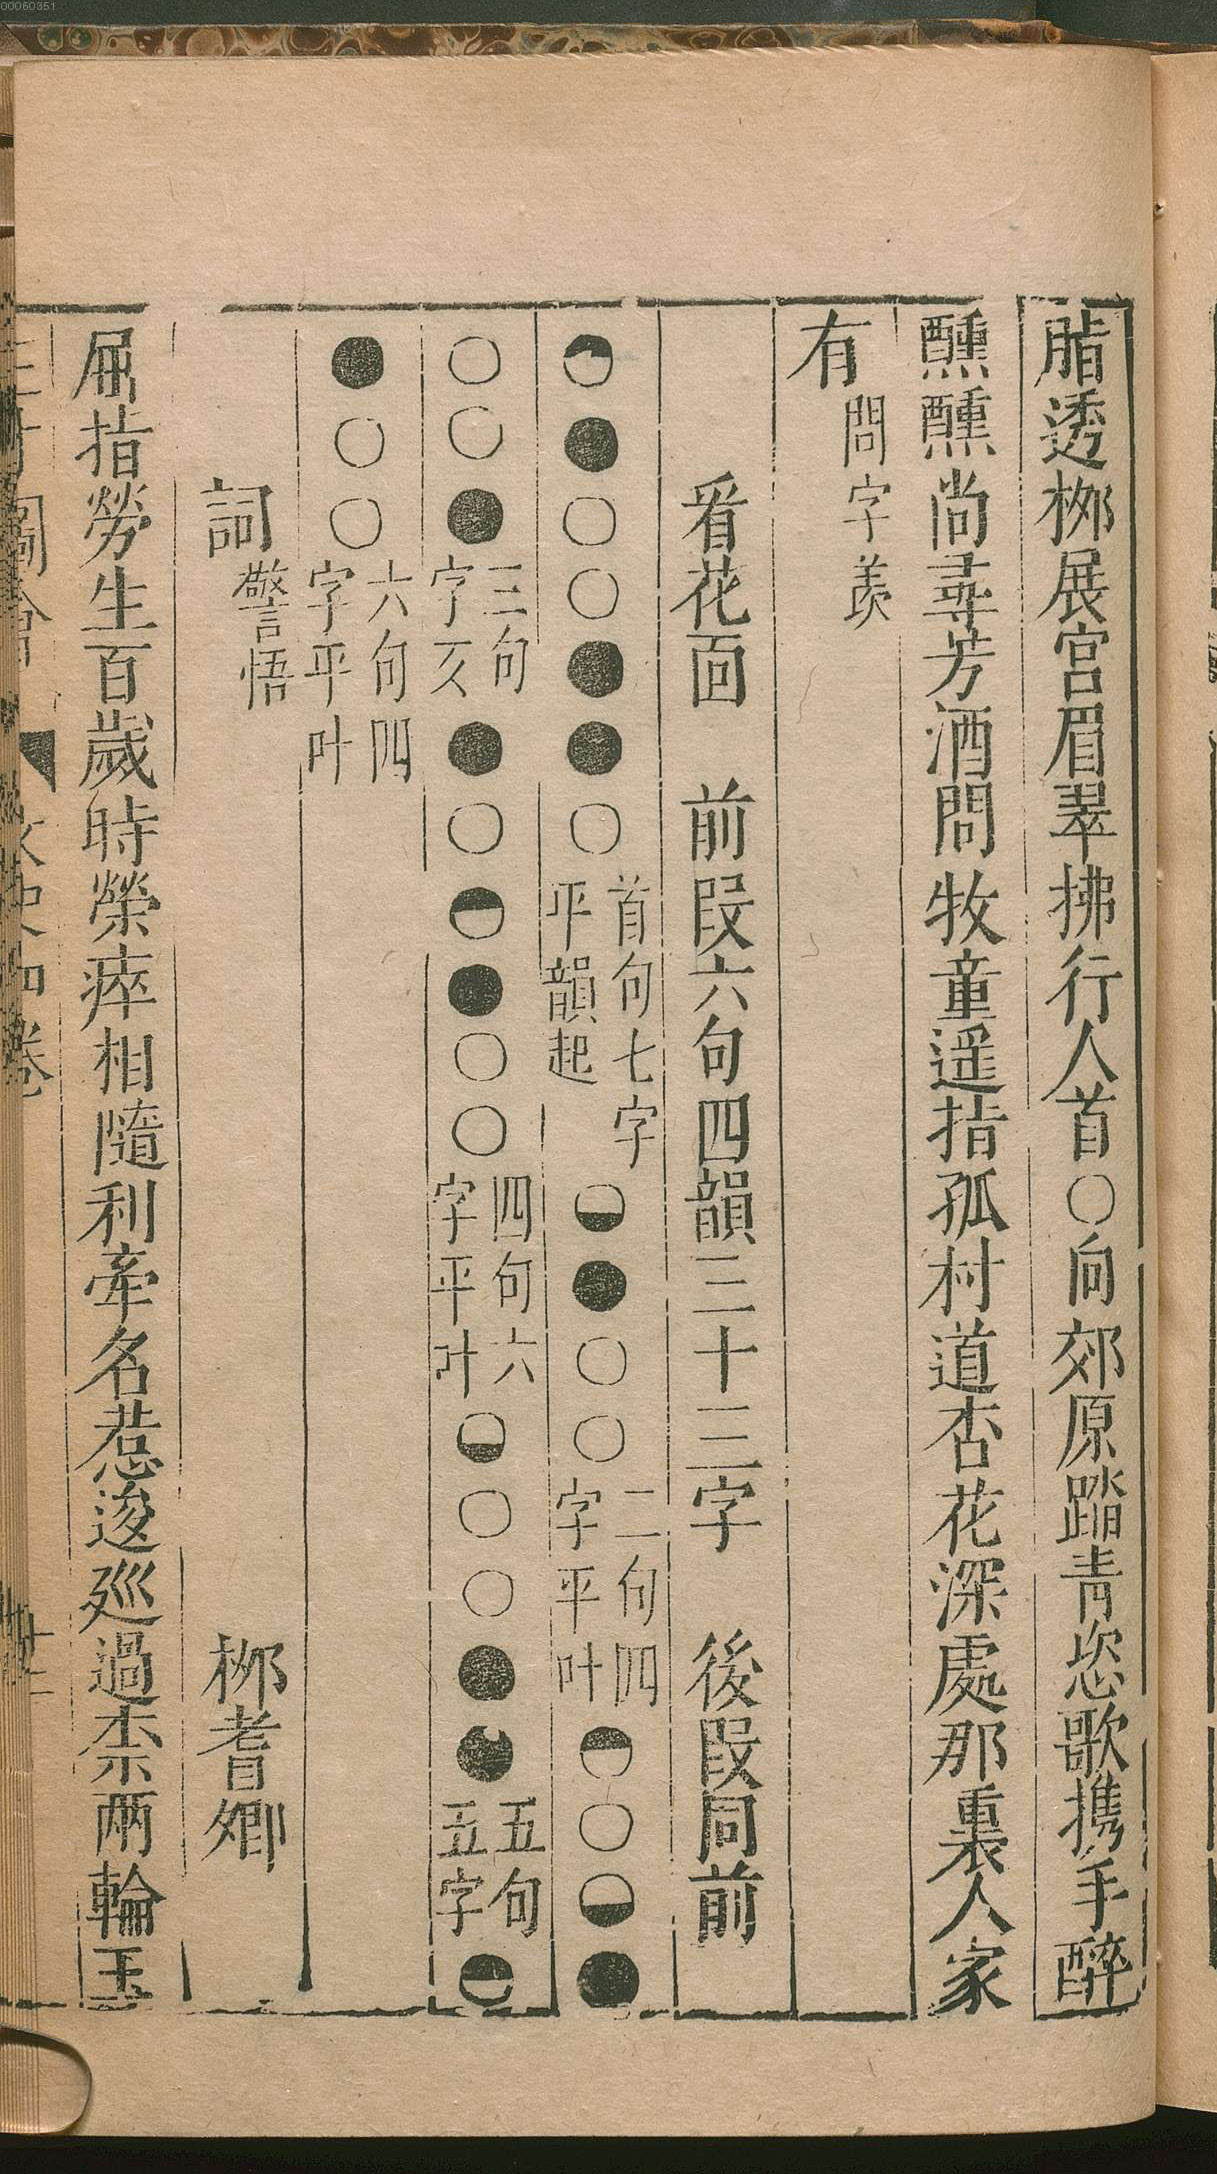 00060351
脂透桞展宫眉翠拂行人首○向郊原踏青恣歌携手醉
醺醺尚尋芳酒問牧童遥指孤村道杏花深處那裏人家
有問字羨
看花囬　前段六句四韻三十三字　後段同前
◓●○○●●○首句七字平韻起◒●○○二句四字平叶◓○◒●
○○●三句字亥●○◓●○○四句六字平叶◒○○●●五句五字◓
●○○六句四字平叶
詞警悟　桞耆卿
屈指勞生百歲時榮瘁相隨利牽名惹逡廵過柰兩輪玉
三才圖會　文史四卷　十三